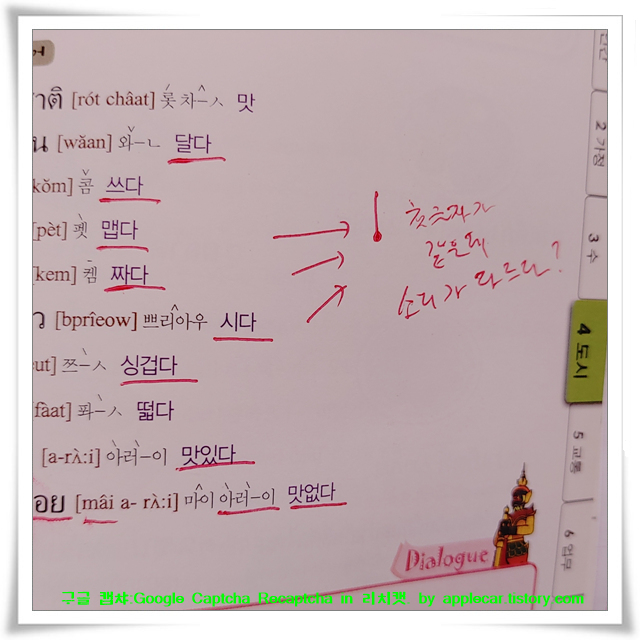 าติ [rót châat] 롯 차ㅡㅅ 맛
น [wăan] 와ㅡㄴ 달다
kŏm] 콤 쓰다
[pèt] 펫 맵다
[kem] 켐 짜다
ว [bprîeow] 쁘리아우 시다
eut] 쯔ㅡㅅ 싱겁다
fàat] 퐈ㅡㅅ 떫다
[a-rλ̀:i] 아러ㅡ이 맛있다
อย [mâi a- rλ̀:i] 마이 아러ㅡ이 맛없다
첫글자가
같은데
소리가 다르다?
2 가정
3 수
4 도시
5 교통
6 업무
Dialogue
구글 캡챠:Google Captcha Recaptcha in 리치캣 by applecar.tistory.com